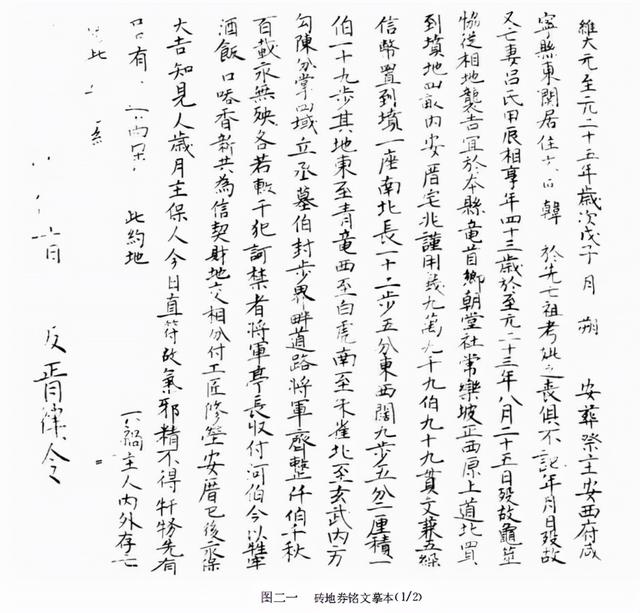 維大元至元二十五年歲次戊子 月 朔 安葬祭主安西府咸
寧縣東關居住 韓 於先亡祖考妣之喪俱不記年月日歿故
又亡妻呂氏甲辰相享年四十三歲於至元二十三年八月二十五日歿故龜筮
恊從相地襲吉宜於本縣竜首鄉朝堂社常樂坡正西原上道北買
到墳地四畝內安厝宅兆謹用錢九萬九千九伯九十九貫文兼五綵
信幣置到墳一座南北長一十二步五分東西闊九步五分二厘積一
伯一十九步其地東至青竜西至白虎南至朱雀北至玄武內方
勾陳分掌四域丘丞墓伯封步界畔道路將軍齊整仟伯千秋
百載永無殃咎若輙干犯訶禁者將軍亭長収付河伯今以牲牢
酒飯 香新共為信契財地交相分付工匠修塋安厝已後永保
大吉知見人歲月主保人今日直符故氣邪精不得 先有
有 此約地 禍主人內外存亡
此
律令
图二一 砖地券铭文摹本(1/2)